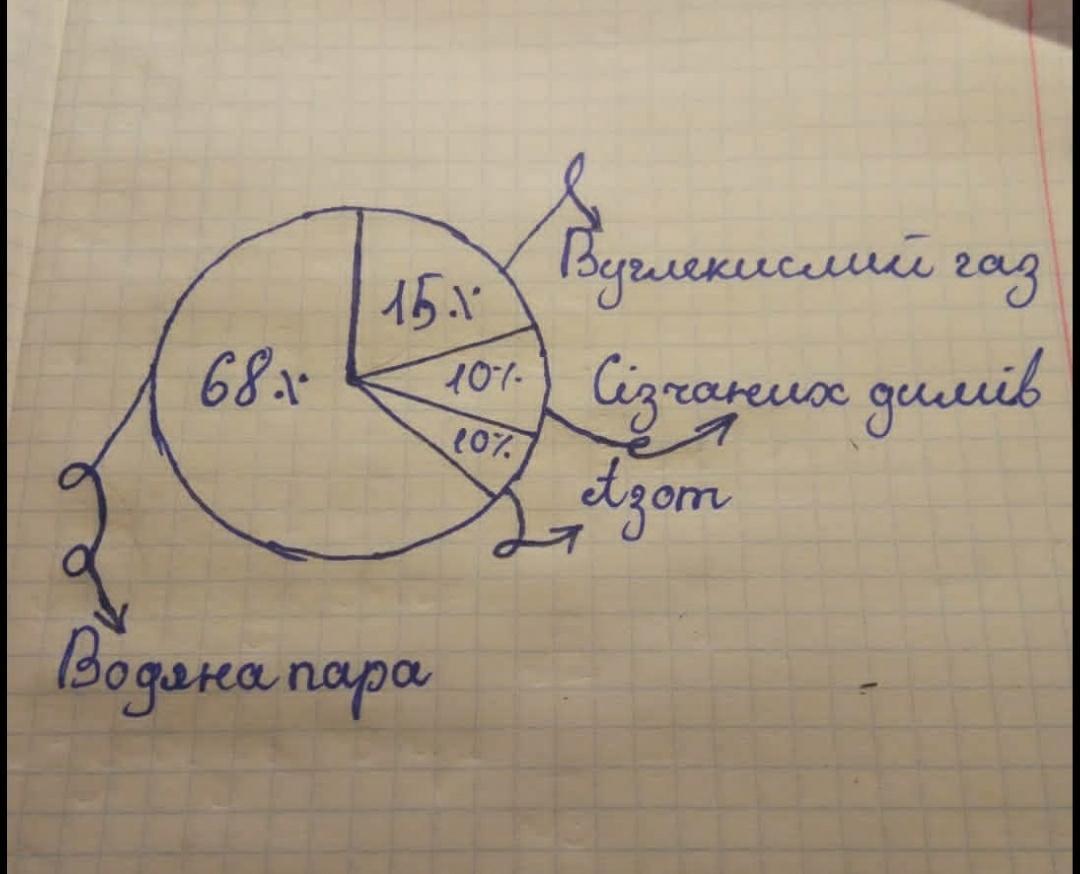 15%
Вуглекислий газ
68%
10%
Сізчаних димів
10%
Азот
Водяна пара